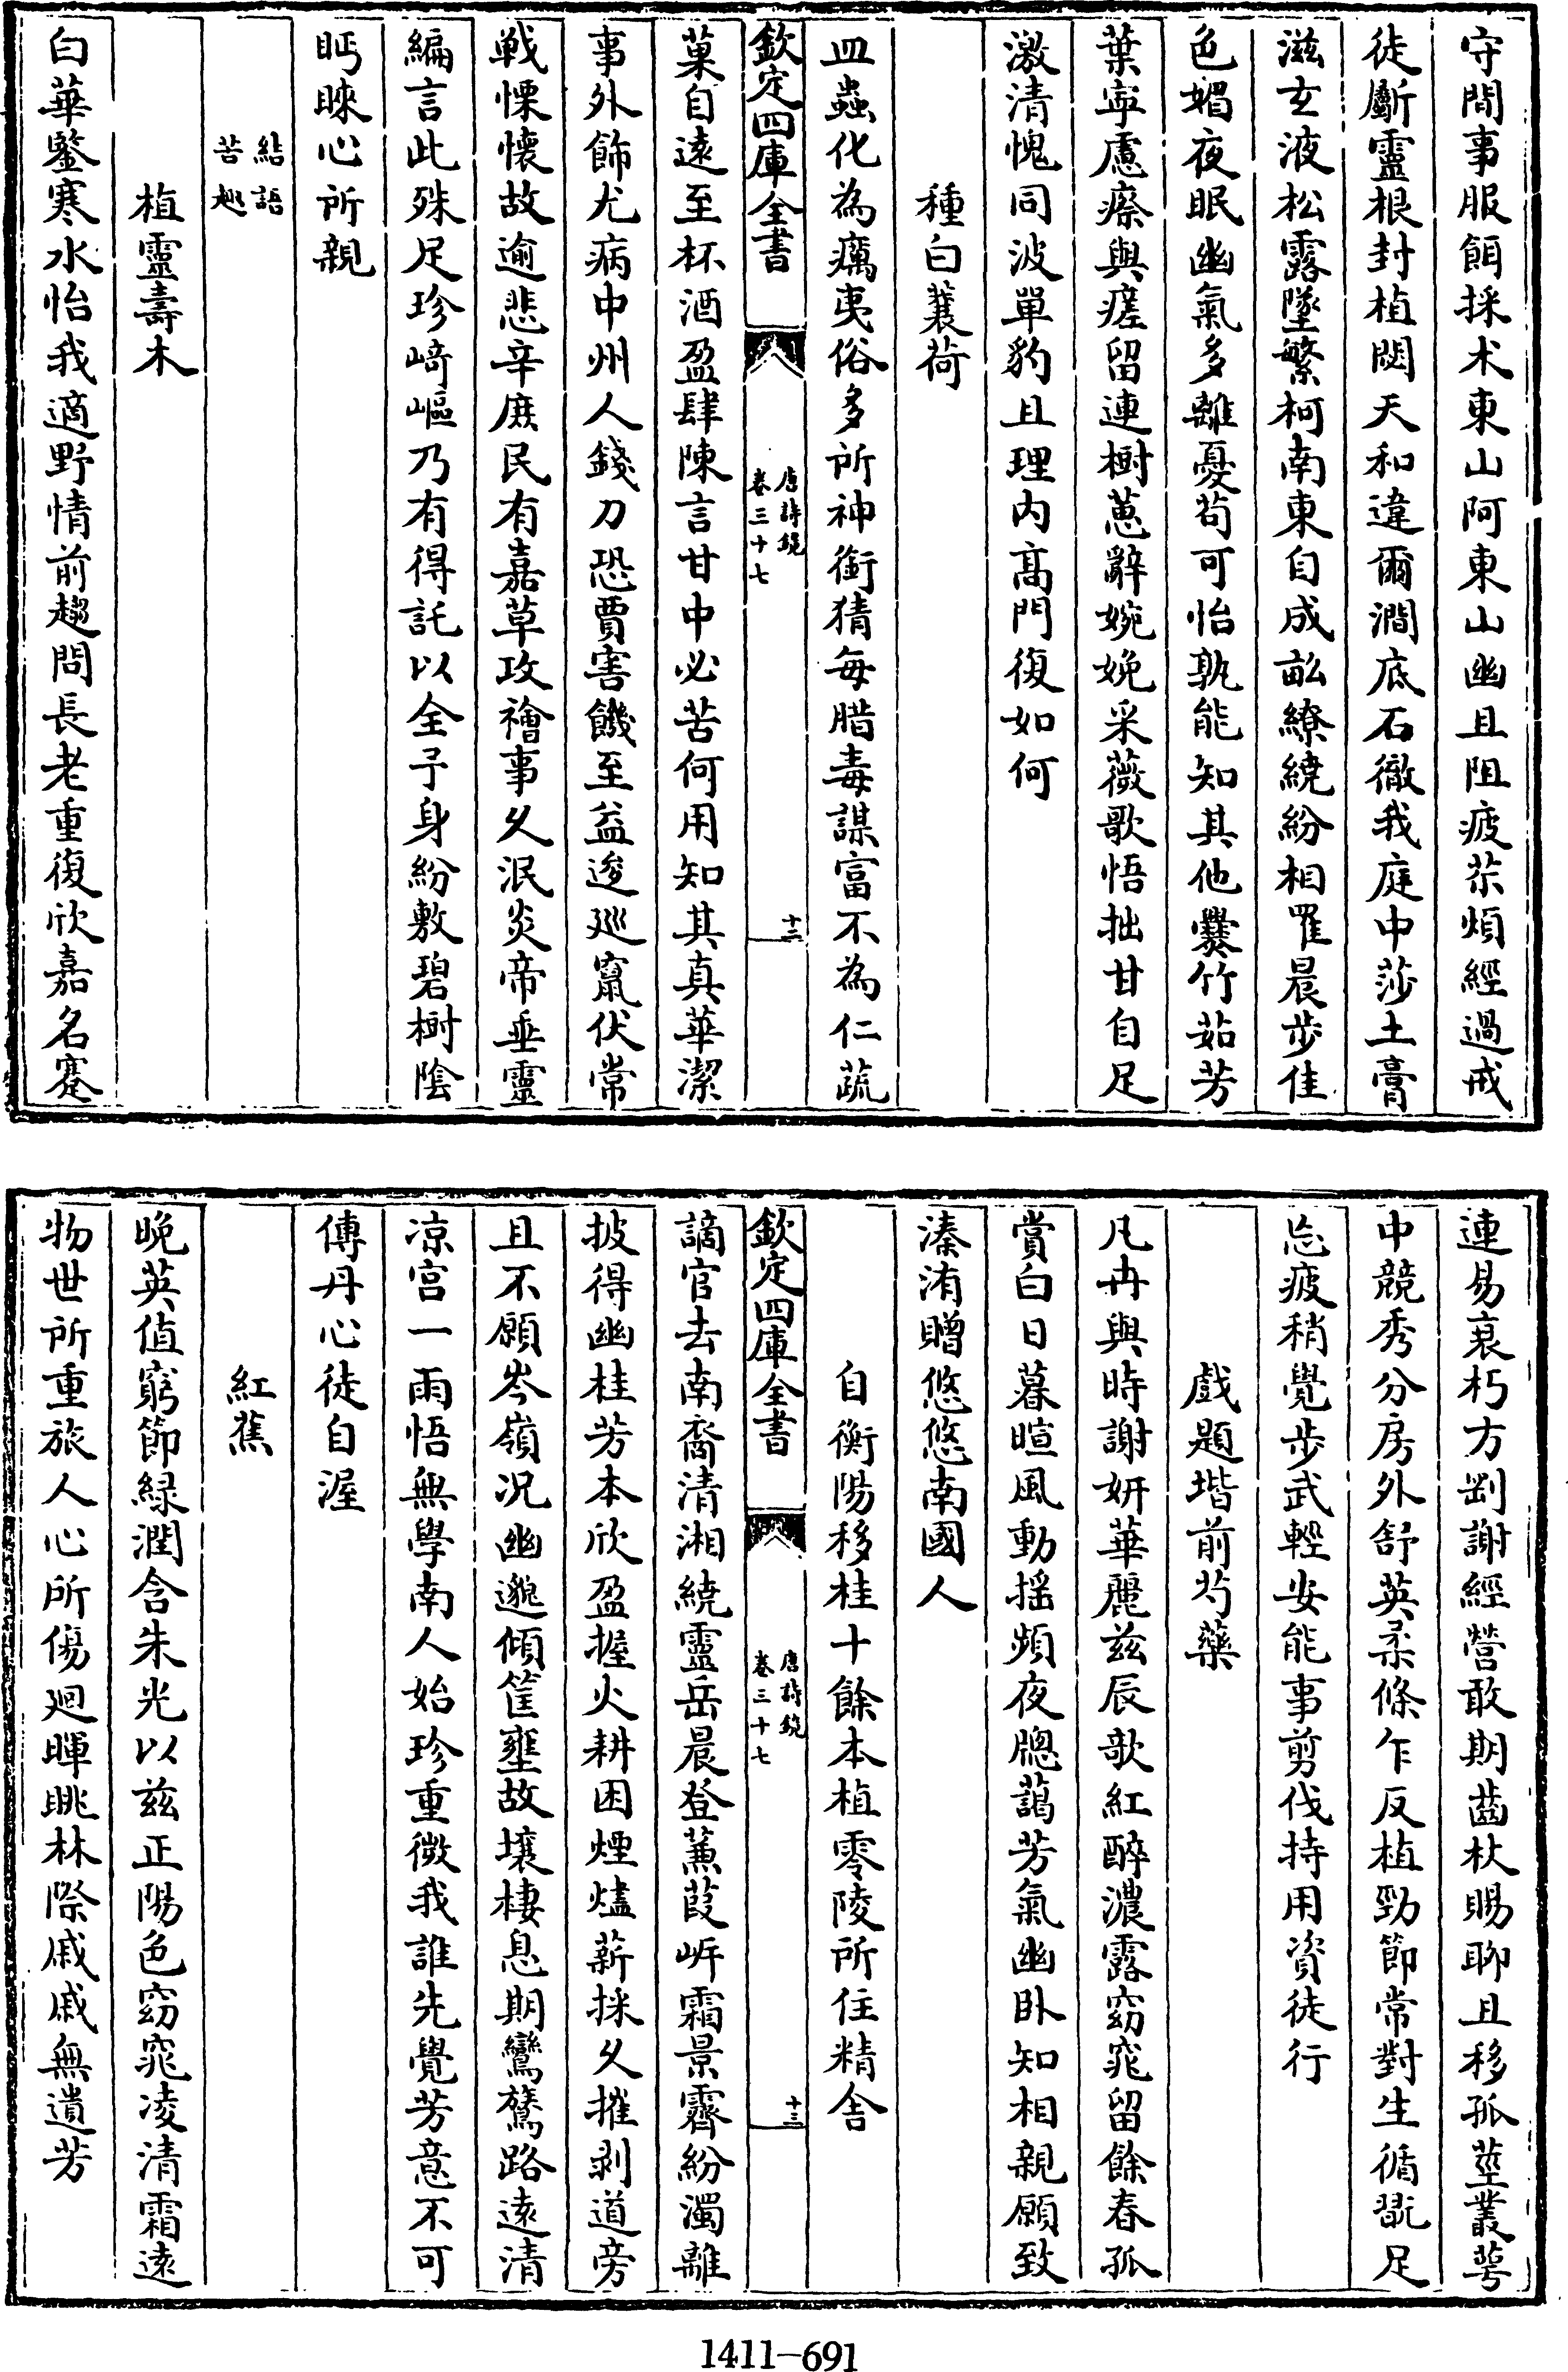 守閒事服餌採术東山阿東山幽且阻疲苶煩經過戒
徒斸靈根封植閟天和違爾澗底石徹我庭中莎土膏
滋玄液松露墜繁柯南東自成畝繚繞紛相羅晨步佳
色媚夜眠幽氣多離憂苟可怡孰能知其他爨竹茹芳
葉寧慮瘵與瘥留連樹蕙辭婉娩采薇歌悟拙甘自足
激清愧同波單豹且理内髙門復如何
種白蘘荷
皿蟲化為癘夷俗多所神銜猜每腊毒謀富不為仁蔬
欽定四庫全書
唐詩鏡
卷三十七
十二
菓自遠至杯酒盈肆陳言甘中必苦何用知其真華潔
事外飾尤病中州人錢刀恐賈害饑至益逡巡竄伏常
戰慄懷故逾悲辛庶民有嘉草攻禬事乆泯炎帝垂靈
編言此殊足珍崎嶇乃有得託以全予身紛敷碧樹陰
眄睞心所親
結語
苦趣
植靈壽木
白華鑒寒水怡我適野情前趨問長老重復欣嘉名蹇
連易衰朽方剛謝經營敢期齒杖賜聊且移孤莖叢萼
中競秀分房外舒英柔條乍反植勁節常對生循翫足
忘疲稍覺步武輕安能事剪伐持用資徒行
戲題堦前芍藥
凡卉與時謝妍華麗兹辰欹紅醉濃露窈窕留餘春孤
賞白日暮暄風動揺頻夜牕藹芳氣幽卧知相親願致
溱洧贈悠悠南國人
自衡陽移桂十餘本植零陵所住精舍
欽定四庫全書
唐詩鏡
卷三十七
十三
謫官去南裔清湘繞靈岳晨登蒹葭岸霜景霽紛濁離
披得幽桂芳本欣盈握火耕困煙燼薪採乆摧剥道旁
且不願岑嶺况幽邈傾筐壅故壤棲息期鸞鷟路逺清
凉宫一雨悟無學南人始珍重微我誰先覺芳意不可
傳丹心徒自渥
紅蕉
晚英值窮節緑潤含朱光以兹正陽色窈窕凌清霜逺
物世所重旅人心所傷廻暉眺林際戚戚無遺芳
1411-691